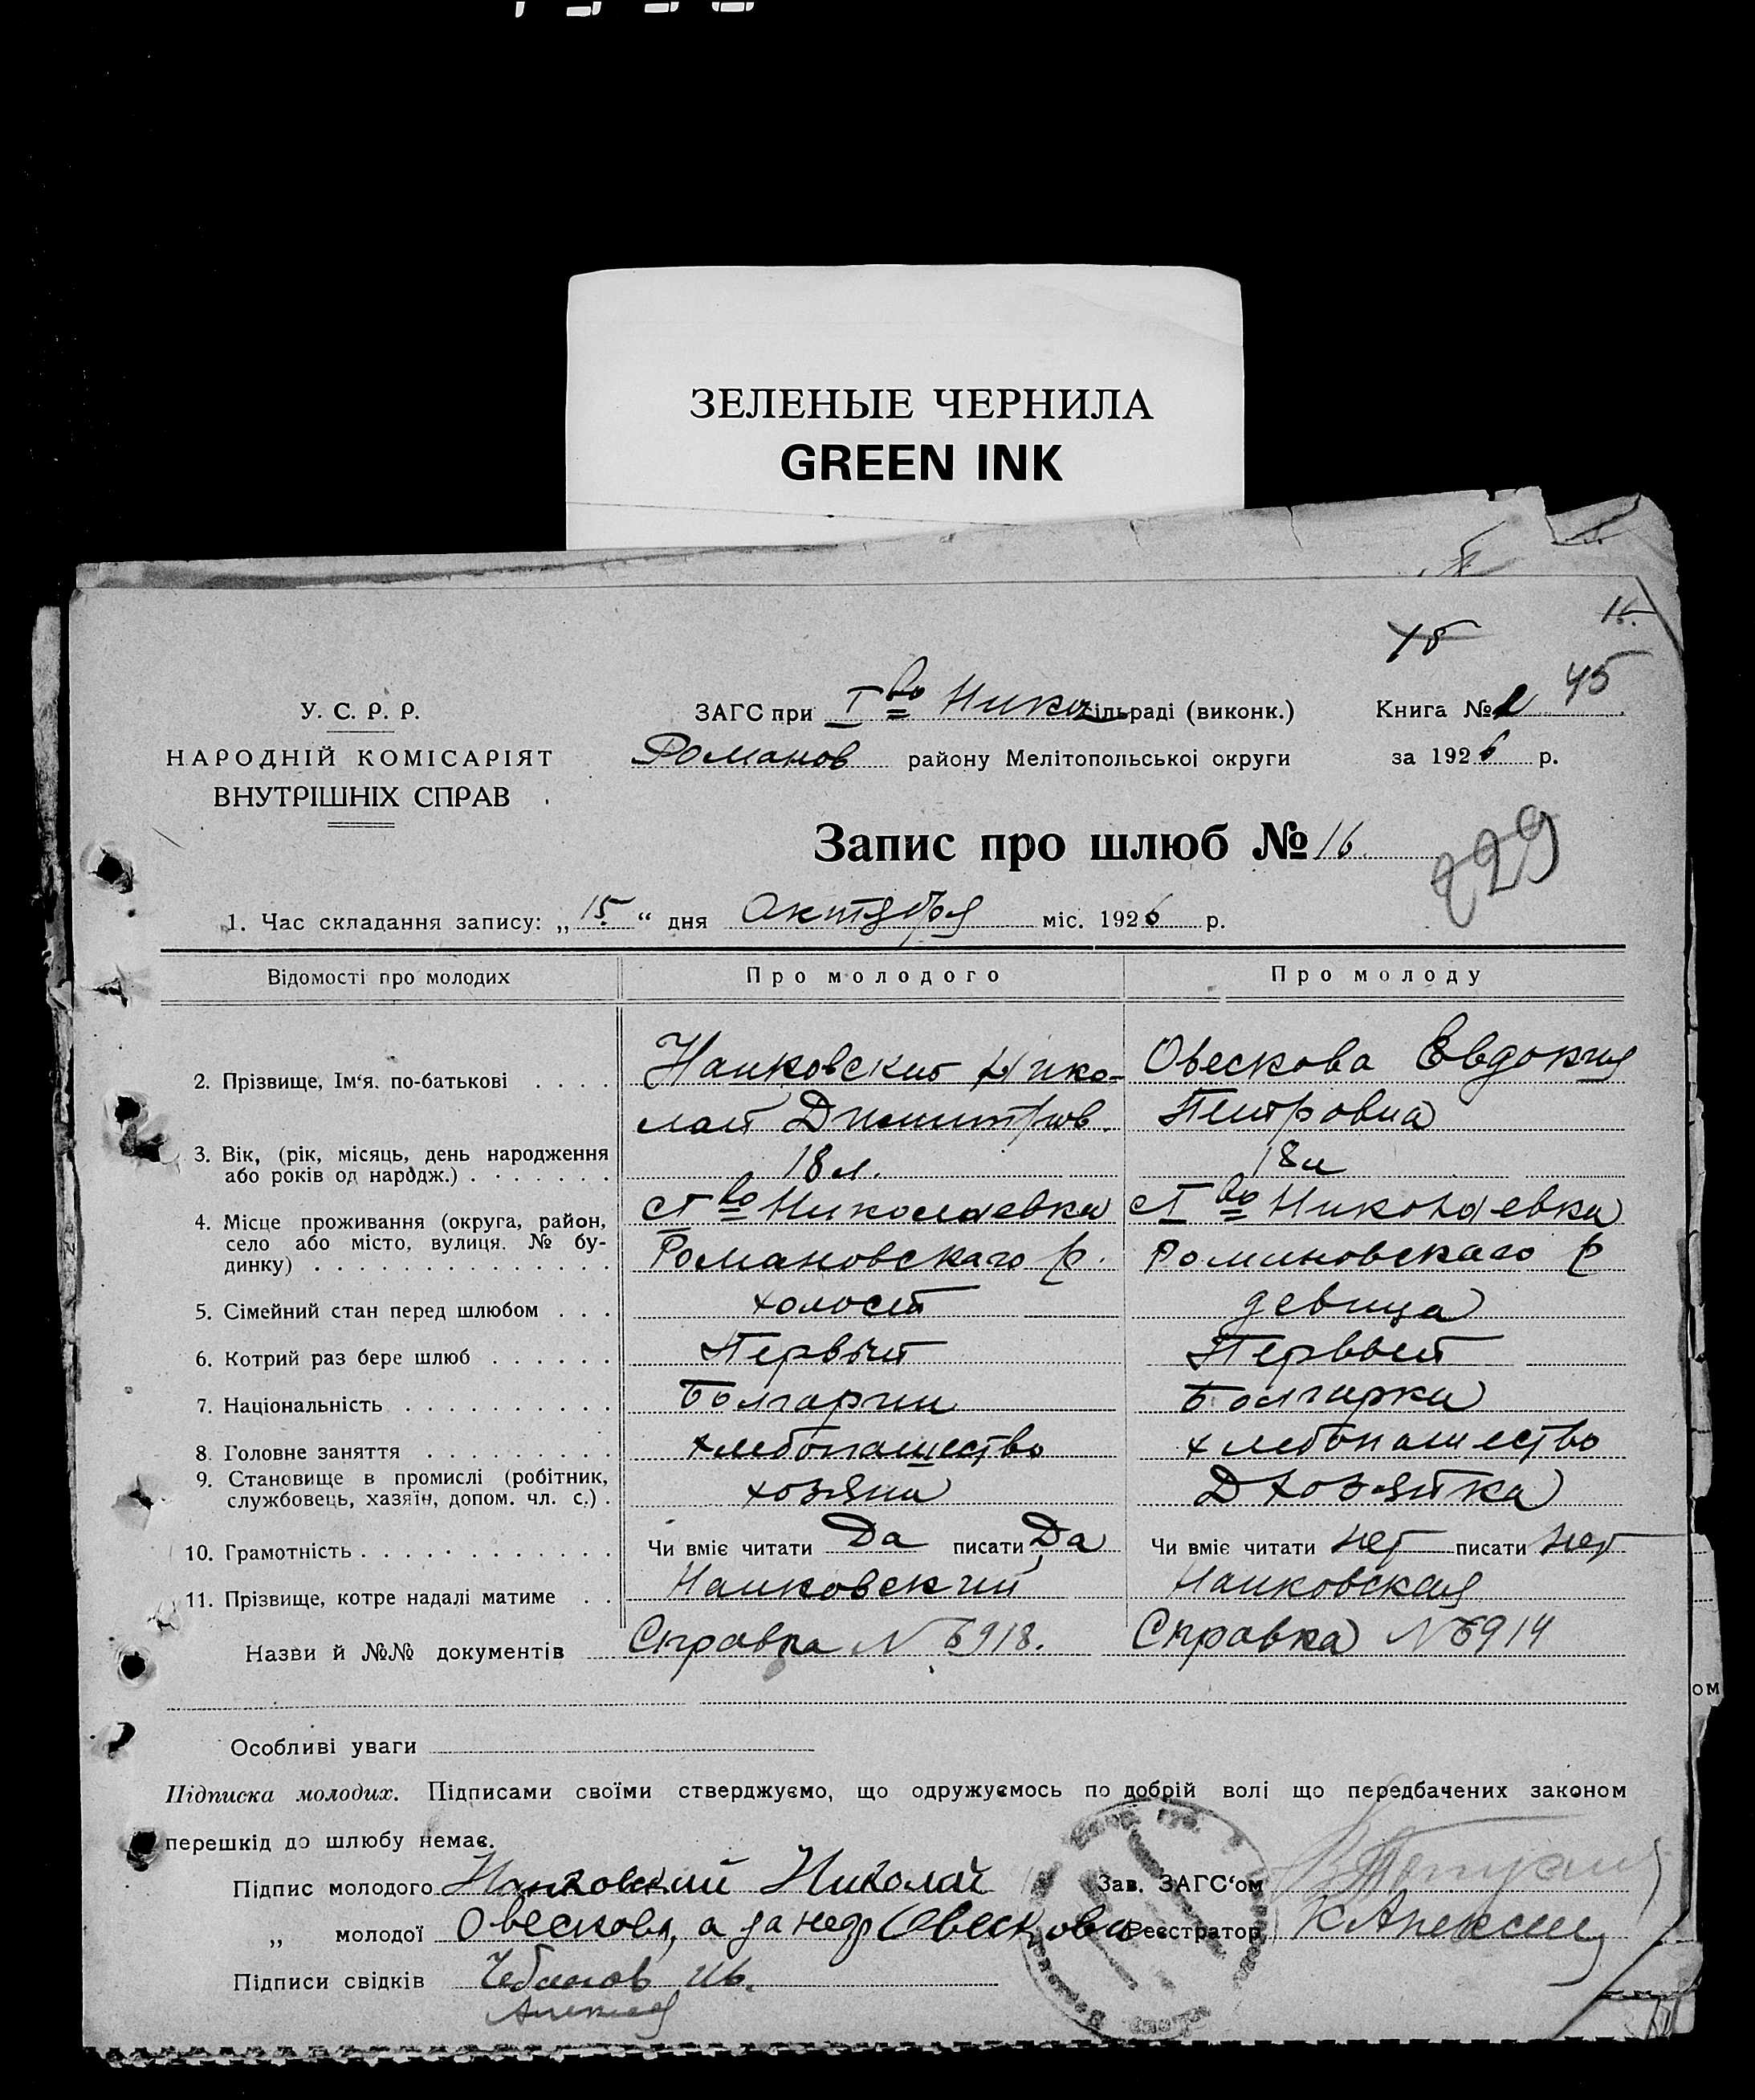 ЗЕЛЕНЫЕ ЧЕРНИЛА
GREEN INK
16.
45
У. С. Р. Р.
ЗАГС при І во Нико сільраді (виконк.) Книга №
НАРОДНІЙ КОМІСАРІЯТ
Романов району Мелітопольської округи за 1926 р.
ВНУТРІШНІХ СПРАВ
Запис про шлюб № 16
229
1. Час складання запису: „15." дня Октября міс. 1926 р.
Відомості про молодих Про молодого Про молоду
2. Прізвище, Ім'я. по-батькові Нанковский Нико- Овескова Евдокия
лай Димитров. Петровна
3. Вік, (рік, місяць, день народження
або років од нардж.) 18 л. 18 л
4. Місце проживання (округа, район, с І во Николаевка с І во Николаевка
село або місто, вулиця. № бу-
динку) Романовскаго р. Романовскаго р
5. Сімейний стан перед шлюбом холост девица
6. Котрий раз бере шлюб Первый Первый
7. Національність Болгарин Болгарка
8. Головне заняття хлебопашество хлебопашество
9. Становище в промислі (робітник,
службовець, хазяїн, допом. чл. с.) хозяин Д хозяйка
10. Грамотність Чи вміє читати Да писати Да Чи вміє читати нет писати нет
11. Прізвище, котре надалі матиме Нанковский Нанковская
Назви й №№ документів Справка N 6918. Справка N 6914
Особливі уваги
Підписка молодих. Підписами своїми стверджуємо, що одружуємось по добрій волі що передбачених законом
перешкід до шлюбу немає.
Підпис молодого Нанковский Николай Зав. ЗАГС'ом
„ молодої Овескова, а за нер Овескова Реєстратор
Підписи свідків Чебанов Ив.
ом